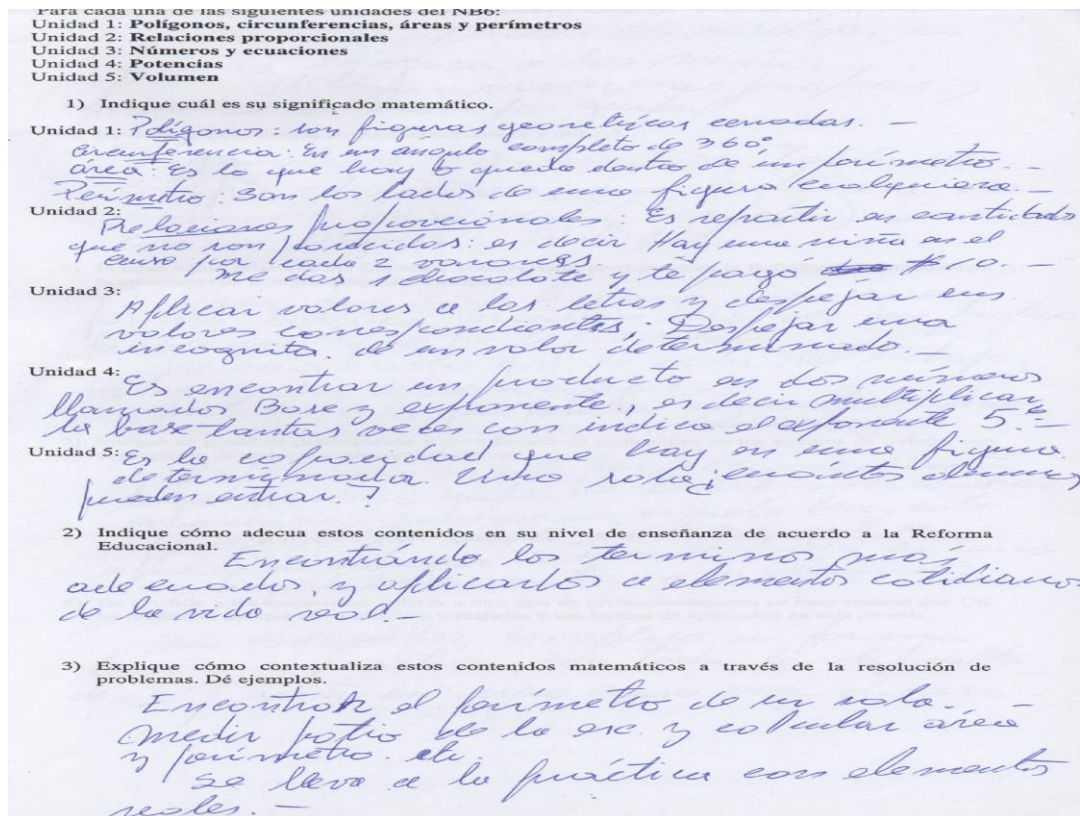 Para cada una de las siguientes unidades del NB6:
Unidad 1: Polígonos, circunferencias, áreas y perímetros
Unidad 2: Relaciones proporcionales
Unidad 3: Números y ecuaciones
Unidad 4: Potencias
Unidad 5: Volumen
1) Indique cuál es su significado matemático.
Unidad 1: Polígonos: son figuras geometrícas cerradas. –
Circunferencia: Es un angulo completo de 360°
área: Es lo que hay o queda dentro de un perímetro. –
Perimetro: Son los lados de una figura cualquiera. –
Unidad 2:
Relaciones proporcionales: Es repartir en cantidades
que no son parecidas: es decir Hay una niña en el
curso por cada 2 varones
me das 1 chocolate y te pago $10. –
Unidad 3:
Aplicar valores a las letras y despejar sus
valores correspondientes; Despejar una
incognita de un valor determinado –
Unidad 4:
Es encontrar un producto en dos números
llamados Base y exponente, es decir multiplicar
la base tantas veces con indica el exponente
Unidad 5: Es la capacidad que hay en una figura
determinada. Una sala ¿cuántos alumnos
pueden entrar. ?
2) Indique cómo adecua estos contenidos en su nivel de enseñanza de acuerdo a la Reforma
Educacional.
Encontrándo los terminos más
adecuados, y aplicarlos a elementos cotidianos
de la vida real.–
3) Explique cómo contextualiza estos contenidos matemáticos a través de la resolución de
problemas. Dé ejemplos.
Encontrar el perímetro de un sala. –
Medir patio de la esc. y calcular área
y perímetro. etc.
Se lleva a la práctica con elementos
reales. –